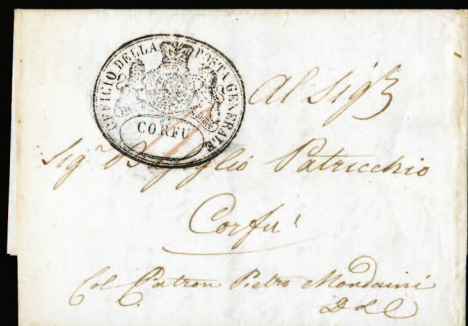 UFFICIO DELLA POSTA GENERALE
CORFU
Al Sig.r
Sig.r Patricchio
Corfu'
Col Patron Pietro Mondaini